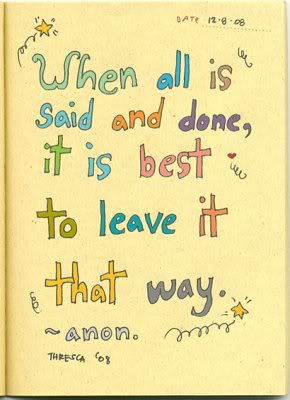 DATE 12.8.08
When all is
said and done,
it is best
to leave it
that way.
~anon.
THRESCA '08